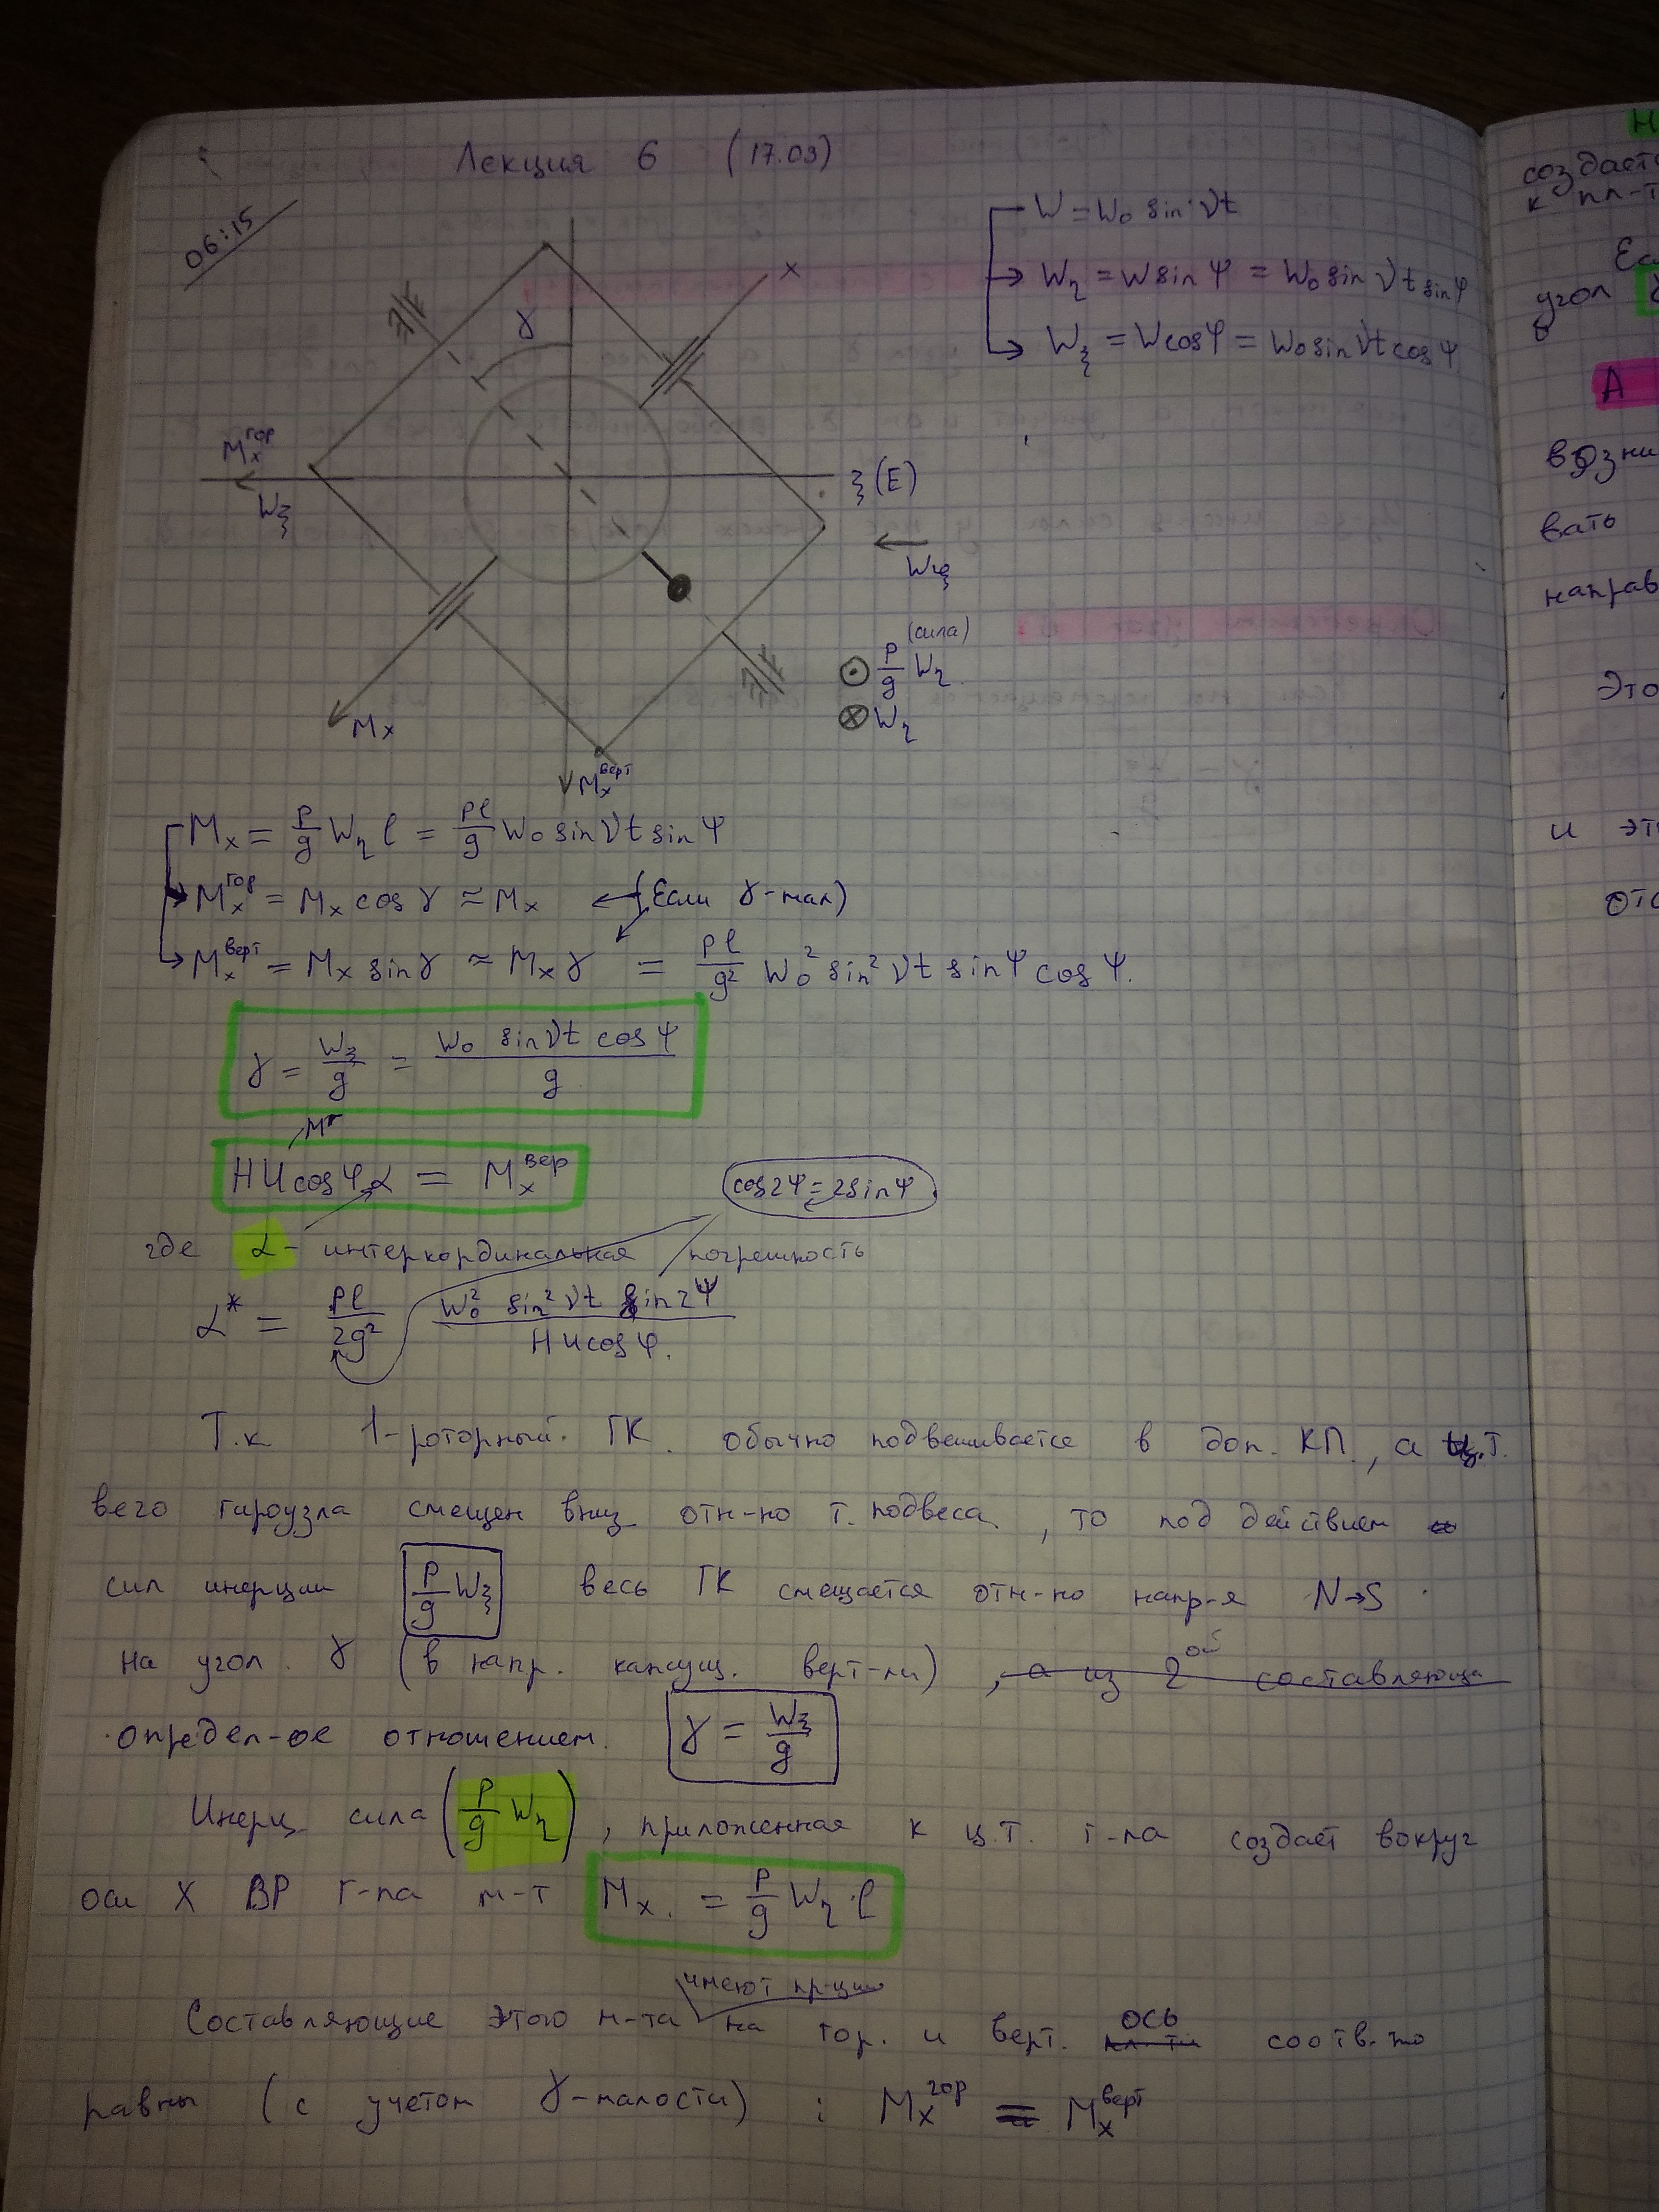 Лекция 6 (17.03)
06:15
W = W₀ sin νt
W_η = W sin Ψ = W₀ sin νt sin Ψ
W_ξ = W cos Ψ = W₀ sin νt cos Ψ
x
γ
M_x^гор
W_ξ
ξ (E)
W_ξ
(сила)
⊙ P/g W_η
⊗ W_η
M_x
M_x^верт
M_x = P/g W_η l = Pl/g W₀ sin νt sin Ψ
M_x^гор = M_x cos γ ≈ M_x ← (Если γ-мал)
M_x^верт = M_x sin γ ≈ M_x γ = Pl/g² W₀² sin² νt sin Ψ cos Ψ.
γ = W_ξ/g = W₀ sin νt cos Ψ / g
HU cos φ α = M_x^вер
cos2Ψ = 2sinΨ
где α - интеркординальная погрешность
α* = Pl/2g² W₀² sin² νt sin 2Ψ / HU cos φ.
Т.к 1-роторный ГК обычно подвешивается в доп. КП, а ц.т.
всего гироузла смещен вниз отн-но т. подвеса, то под действием
сил инерции P/g W_ξ весь ГК смещается отн-но напр-я N→S
на угол γ (в напр. кажущ. верт-ли), а из 2ой составляюща
определ-ое отношением γ = W_ξ/g
Инерц. сила (P/g W_η), приложенная к ц.т. г-па создаёт вокруг
оси X ВР г-па м-т M_x = P/g W_η · l
имеют пр-ции
Составляющие этого м-та на гор. и верт. ось соотв-но
равны (с учетом γ-малости) : M_x^гор = M_x^верт
Н
создаёт
к пл-т
Есл
угол γ
в
А
возни
вать
направ
Это
и это
отс